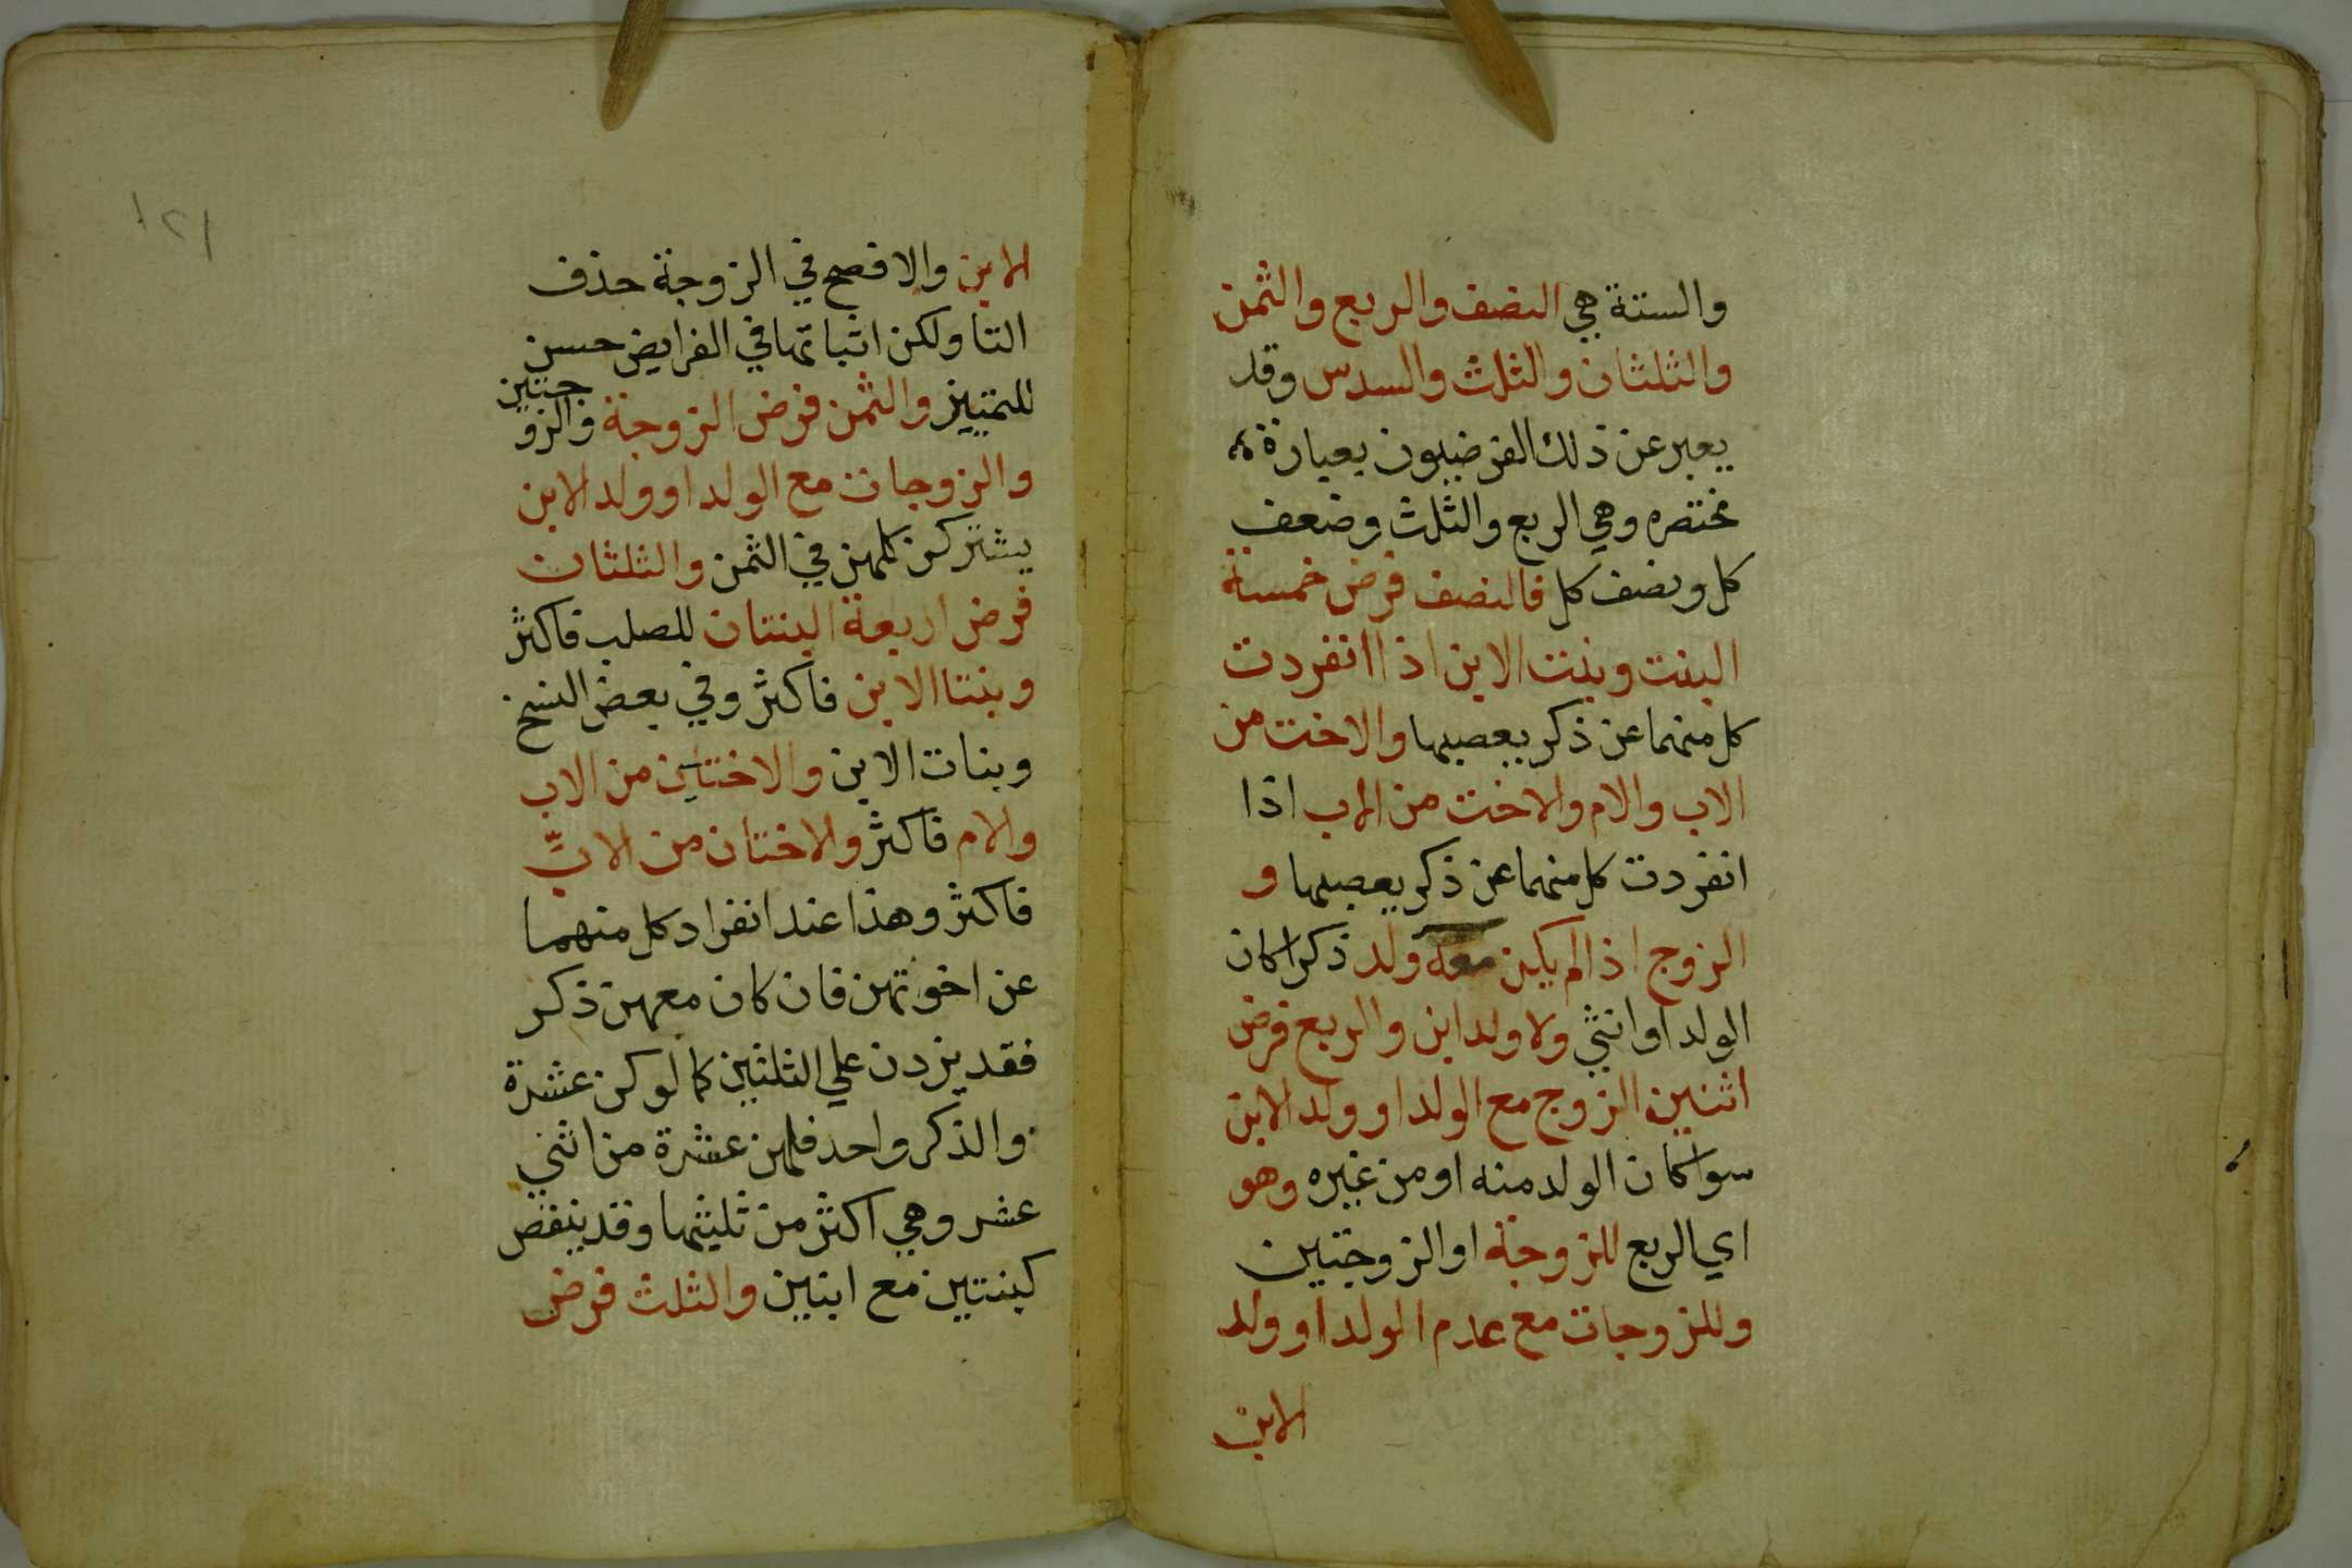 والستة هي النصف والربع والثمن
والثلثان والثلث والسدس وقد
يعبر عن ذلك الفرضيون بعبارة
مختصره وهي الربع والثلث وضعف
كل ونصف كل فالنصف فرض خمسة
البنت وبنت الابن اذا انفردت
كل منهما عن ذكر يعصبها والاخت من
الاب والام والاخت من الاب اذا
انفردت كل منهما عن ذكر يعصبها و
الزوج اذا لم يكن معه ولد ذكرا كان
الولد او انثي ولا ولد ابن والربع فرض
اثنين الزوج مع الولد او ولد الابن
سوا كان الولد منه او من غيره وهو
اي الربع للزوجة او الزوجتين
وللزوجات مع عدم الولد او ولد
الابن
١٢١
الابن والافصح في الزوجة حذف
التا ولكن اثباتها في الفرايض حسن
للتمييز والثمن فرض الزوجة والزوجتين
والزوجات مع الولد او ولد الابن
يشتركن كلهن في الثمن والثلثان
فرض اربعة البنتان للصلب فاكثر
وبنتا الابن فاكثر وفي بعض النسخ
وبنات الابن والاختين من الاب
والام فاكثر والاختان من الاب
فاكثر وهذا عند انفراد كل منهما
عن اخوتهن فان كان معهن ذكر
فقد يزدن علي الثلثين كما لو كن عشرة
والذكر واحد فلهن عشرة من اثني
عشر وهي اكثر من ثلثيها وقد ينقص
كبنتين مع ابنين والثلث فرض